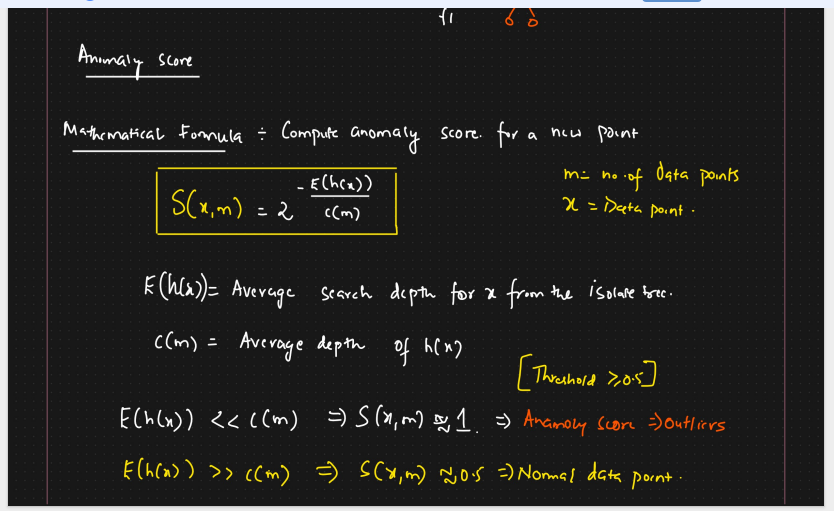 f1
Anomaly Score
Mathematical Formula ÷ Compute anomaly score. for a new point
S(x,m) = 2^(-E(h(x))/c(m))
m = no. of data points
x = Data point.
E(h(x)) = Average search depth for x from the isolate tree.
c(m) = Average depth of h(x)
[Threshold ≥ 0.5]
E(h(x)) << c(m) ⇒ S(x,m) ≈ 1. ⇒ Anamoly score ⇒ Outliers
E(h(x)) >> c(m) ⇒ S(x,m) ≈ 0.5 ⇒ Normal data point.